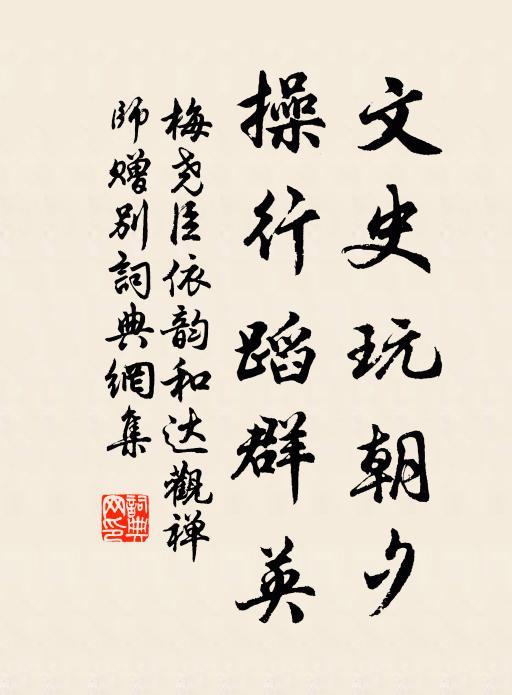 文史玩朝夕
操行蹈群英
梅尧臣依韵和达觀禅
師赠别詞典網集
詞典網印